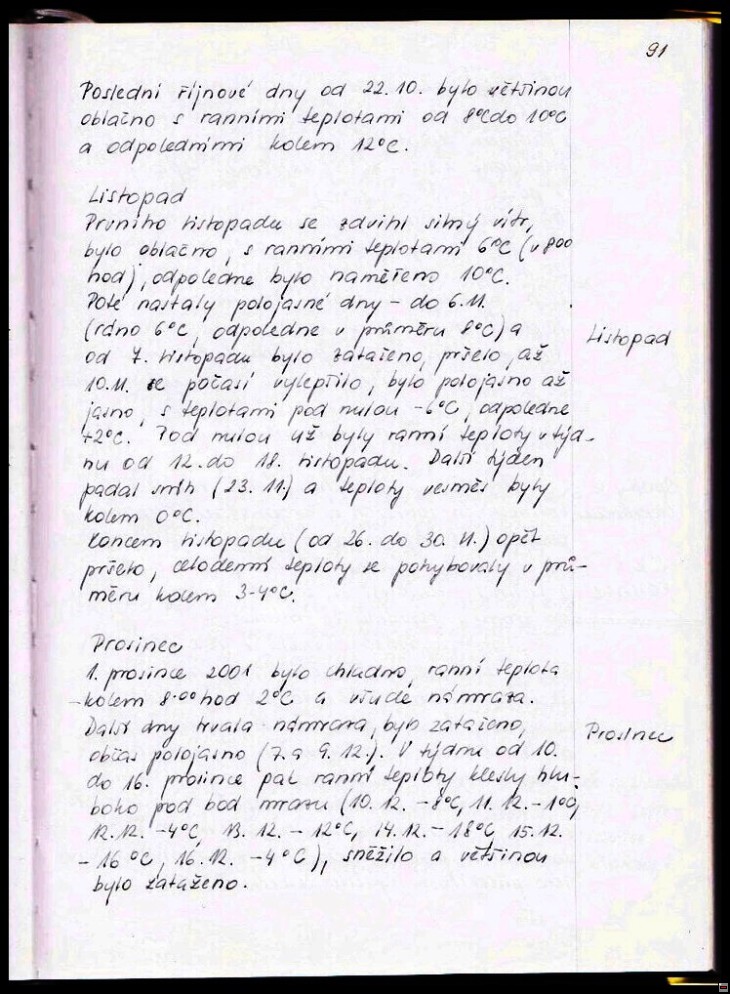 91
Poslední říjnové dny od 22.10. bylo většinou
oblačno s ranními teplotami od 8°C do 10°C
a odpoledními kolem 12°C.
Listopad
Prvního listopadu se zdvihl silný vítr,
bylo oblačno, s ranními teplotami 6°C (v 800
hod), odpoledne bylo naměřeno 10°C.
Poté nastaly polojasné dny - do 6.11.
(ráno 6°C, odpoledne v průměru 8°C) a
Listopad
od 7. listopadu bylo zataženo, pršelo, až
10.11. se počasí vylepšilo, bylo polojasno až
jasno, s teplotami pod nulou -6°C, odpoledne
+2°C. Pod nulou už byly ranní teploty v týd-
nu od 12. do 18. listopadu. Další týden
padal sníh (23. 11.) a teploty vesměs byly
kolem 0°C.
Koncem listopadu (od 26. do 30. 11.) opět
pršelo, celodenní teploty se pohybovaly v prů-
měru kolem 3-4°C.
Prosinec
1. prosince 2001 bylo chladno, ranní teplota
kolem 8.00 hod 2°C a všude námraza.
Další dny trvala námraza, bylo zataženo,
Prosinec
občas polojasno (7. a 9. 12.). V týdnu od 10.
do 16. prosince pak ranní teploty klesly hlu-
boko pod bod mrazu (10. 12. -8°C, 11. 12. -1°C,
12.12. -4°C, 13. 12. - 12°C, 14.12. - 18°C, 15.12.
- 16°C, 16.12. -4°C), sněžilo a většinou
bylo zataženo.